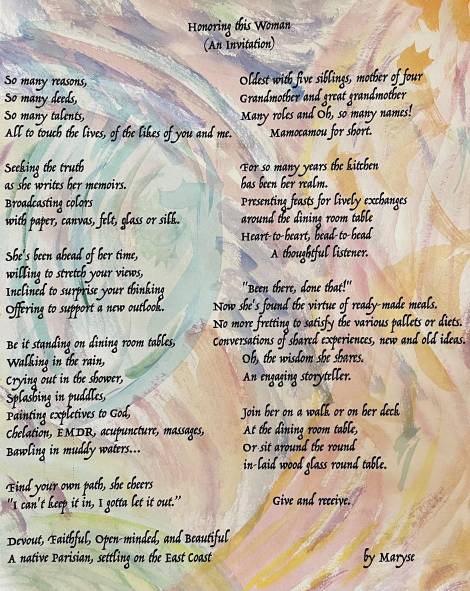 Honoring this Woman
(An Invitation)
So many reasons,
So many deeds,
So many talents,
All to touch the lives, of the likes of you and me.
Seeking the truth
as she writes her memoirs.
Broadcasting colors
with paper, canvas, felt, glass or silk.
She's been ahead of her time,
willing to stretch your views,
Inclined to surprise your thinking
Offering to support a new outlook.
Be it standing on dining room tables,
Walking in the rain,
Crying out in the shower,
Splashing in puddles,
Painting expletives to God,
Chelation, EMDR, acupuncture, massages,
Bawling in muddy waters...
Find your own path, she cheers
"I can't keep it in, I gotta let it out."
Devout, Faithful, Open-minded, and Beautiful
A native Parisian, settling on the East Coast
Oldest with five siblings, mother of four
Grandmother and great grandmother
Many roles and Oh, so many names!
Mamocamou for short.
For so many years the kitchen
has been her realm.
Presenting feasts for lively exchanges
around the dining room table
Heart-to-heart, head-to-head
A thoughtful listener.
"Been there, done that!"
Now she's found the virtue of ready-made meals.
No more fretting to satisfy the various pallets or diets.
Conversations of shared experiences, new and old ideas.
Oh, the wisdom she shares.
An engaging storyteller.
Join her on a walk or on her deck
At the dining room table,
Or sit around the round
in-laid wood glass round table.
Give and receive.
by Maryse